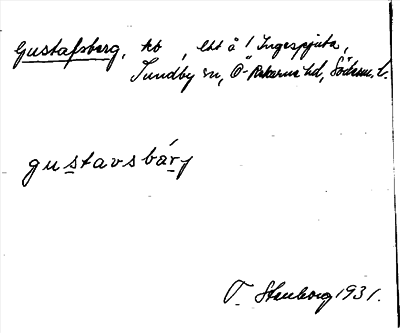 Gustafsberg, ko , ltt å 1 Ingesgjuta,
Sundby sn, Ö-Rekarne hd, Söderm. l.
gustavsbárj
Stenborg 1931.